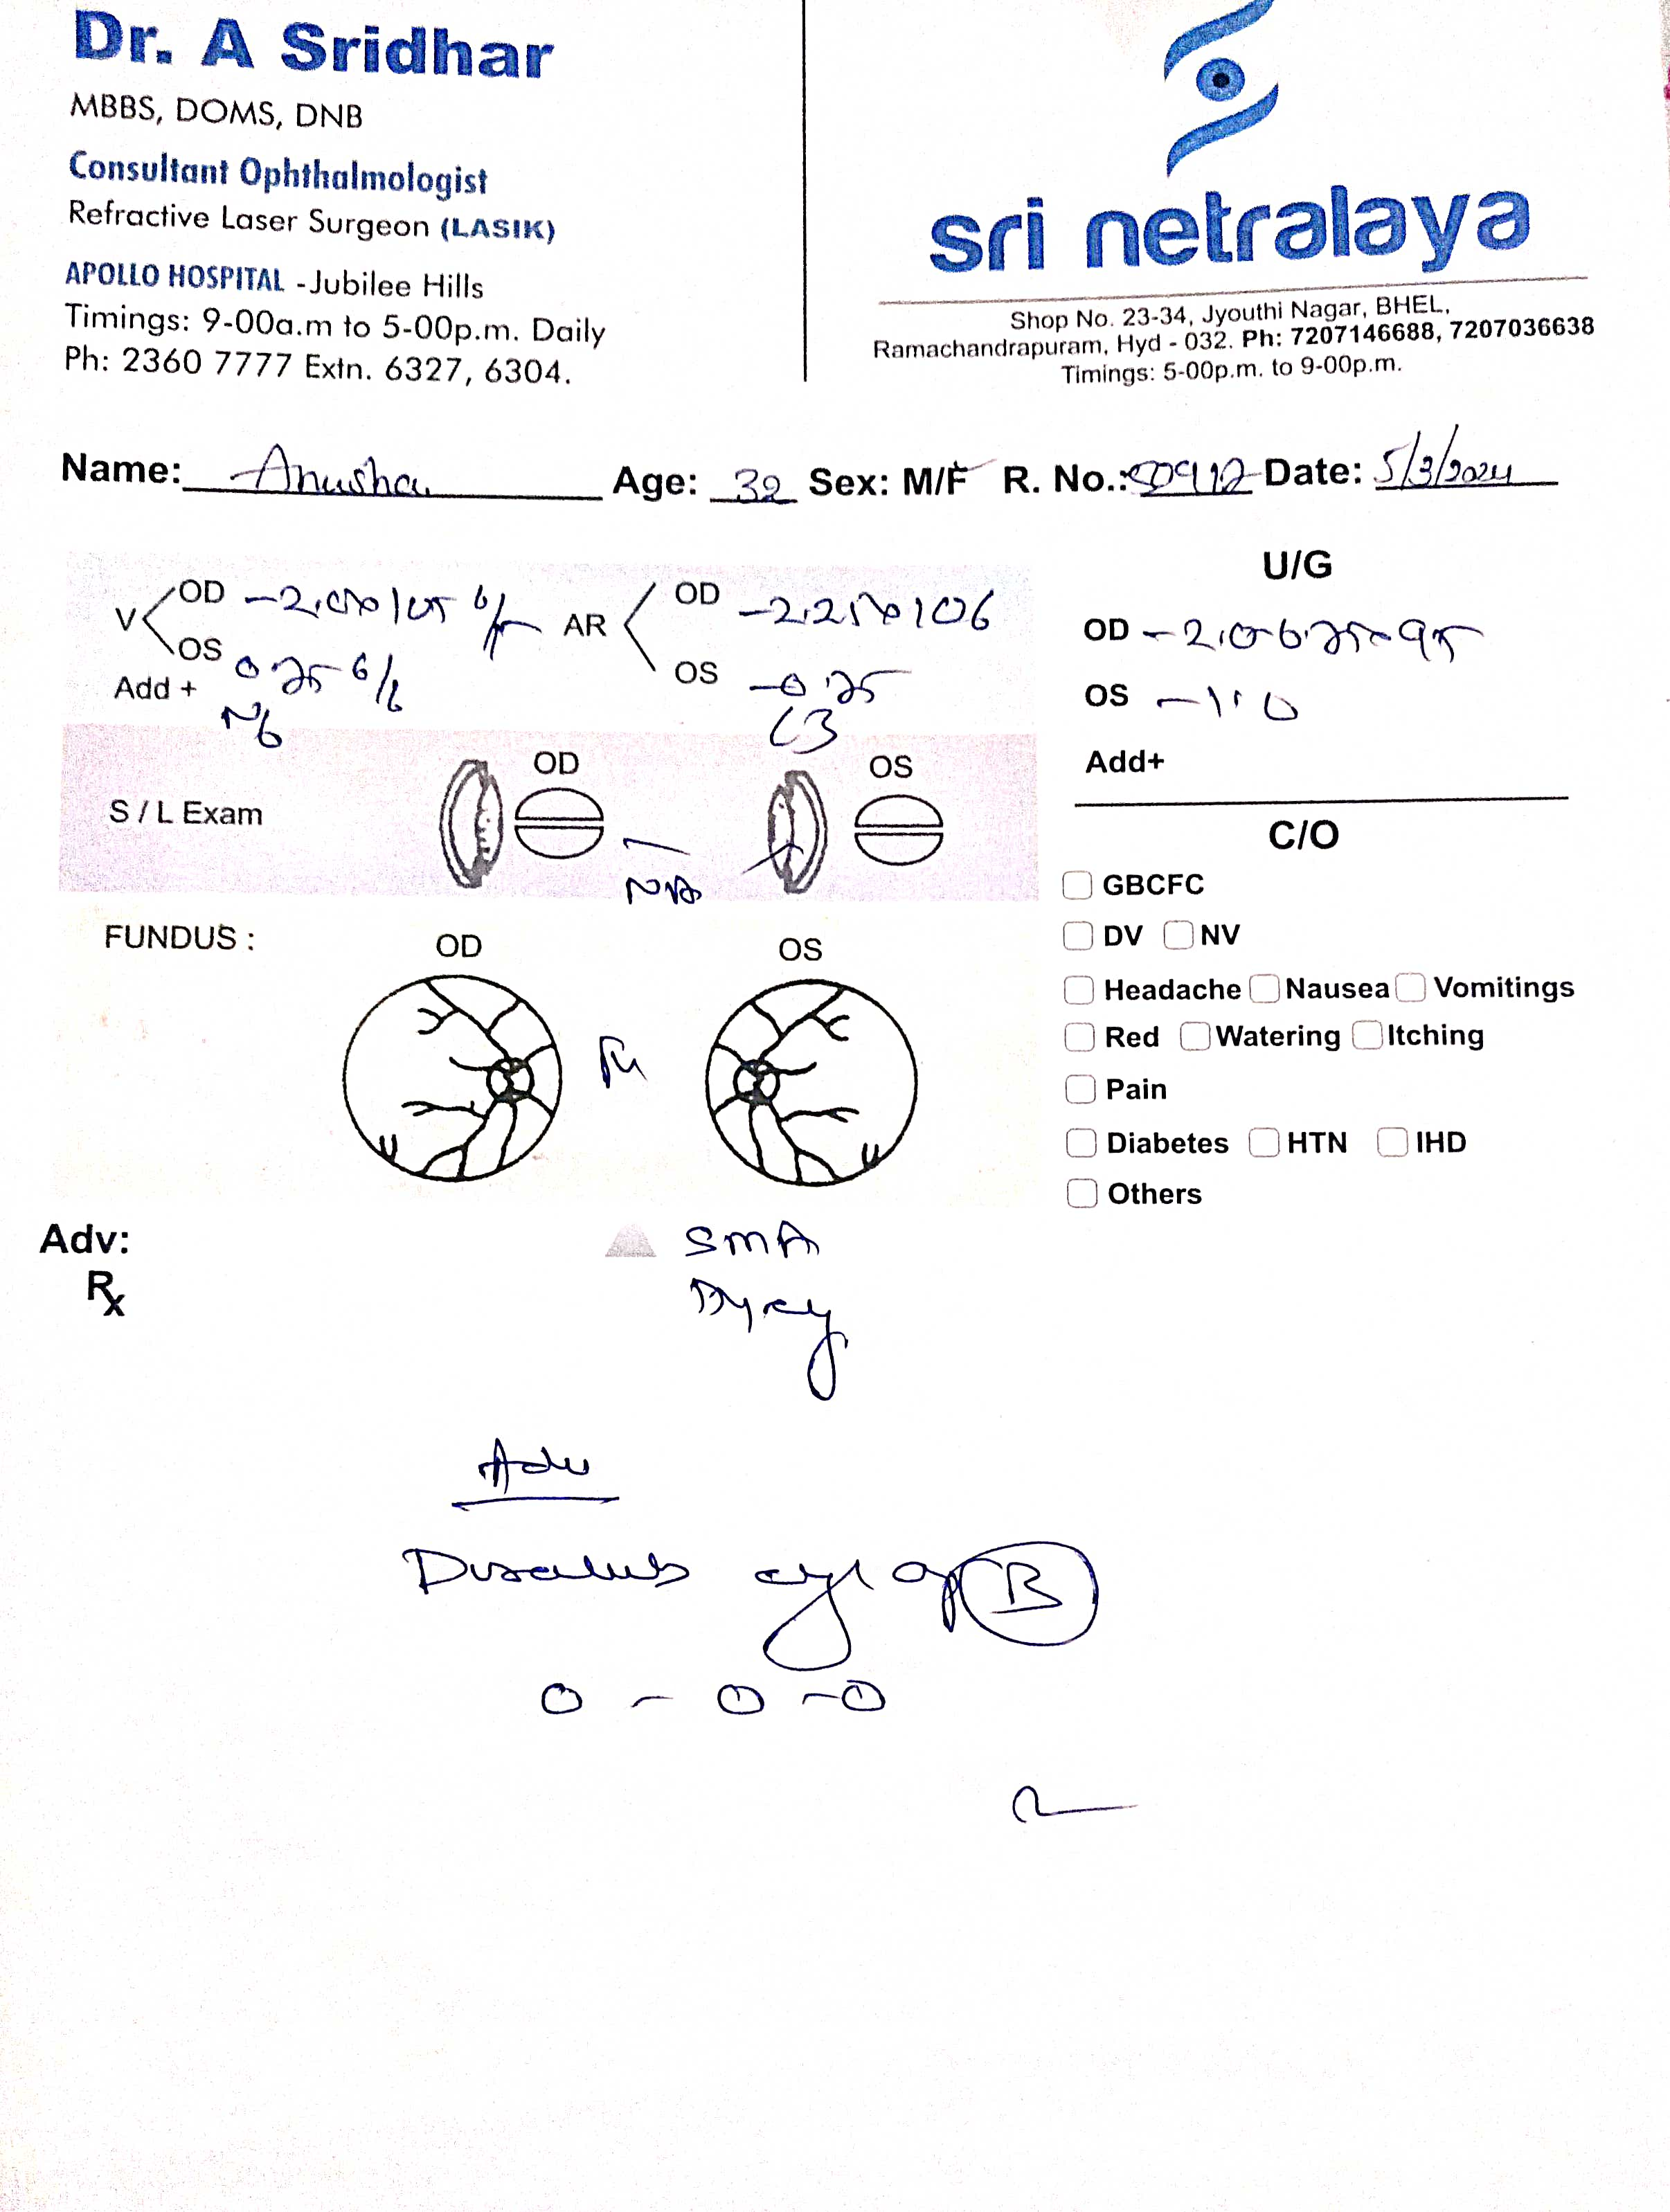 Dr. A Sridhar
MBBS, DOMS, DNB
Consultant Ophthalmologist
Refractive Laser Surgeon (LASIK)
APOLLO HOSPITAL - Jubilee Hills
Timings: 9-00a.m to 5-00p.m. Daily
Ph: 2360 7777 Extn. 6327, 6304.
sri netralaya
Shop No. 23-34, Jyouthi Nagar, BHEL,
Ramachandrapuram, Hyd - 032. Ph: 7207146688, 7207036638
Timings: 5-00p.m. to 9-00p.m.
Name: Anusha Age: 32 Sex: M/F R. No.: Date: 5/3/2024
V OD AR OD
OS 6/6 OS
Add +
N6
U/G
OD
OS -1.0
Add+
S / L Exam OD OS
FUNDUS : OD OS
C/O
GBCFC
DV NV
Headache Nausea Vomitings
Red Watering Itching
Pain
Diabetes HTN IHD
Others
Adv:
Rx
SMA
Adv
B
0 - 0 - 0